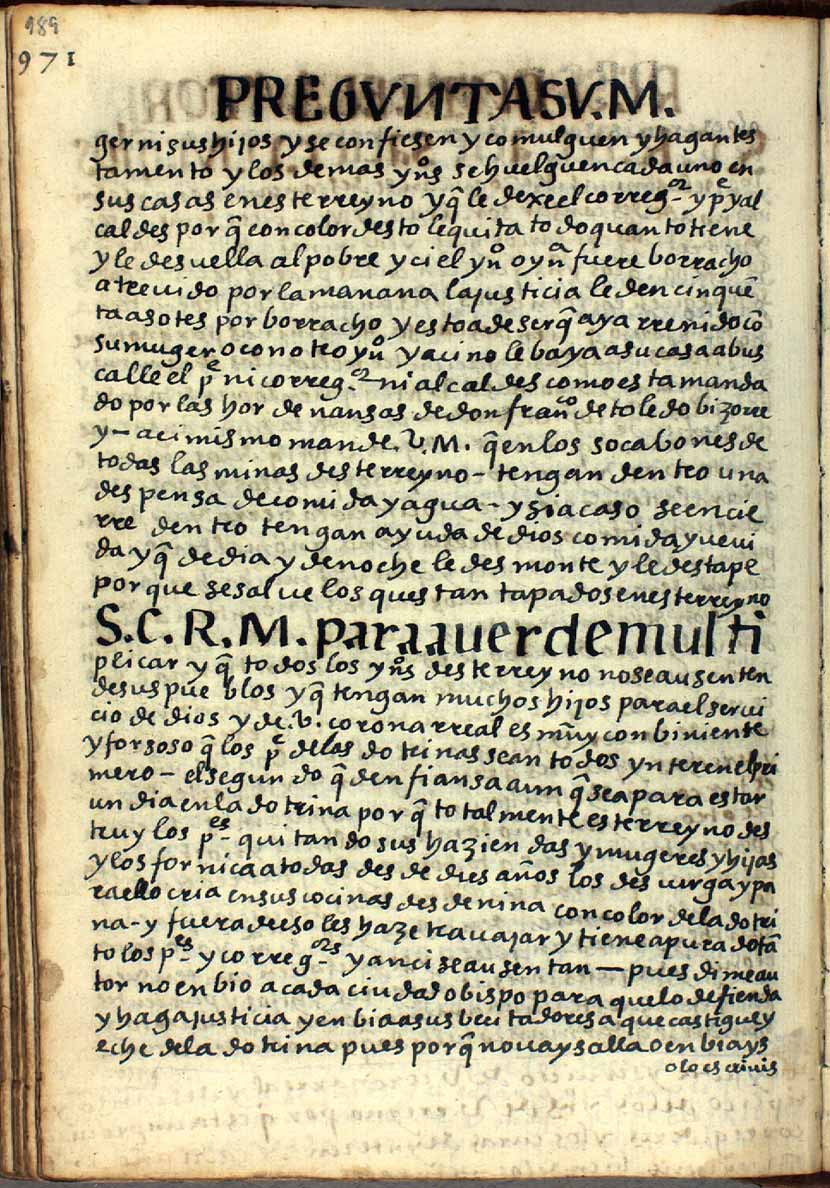 989
971
PREGVNTASV.M.
ger ni sus hijos y se confiesen y comulguen y hagan tes
tamento y los demas yn͞os se huelguen cada uno en
sus casas en este rreyno y q̃ le dexe el correg.or y p.e y al
caldes por q̃ con color desto le quita todo quanto tiene
y le desuella al pobre y ci el yn͞o o yn͞a fuere borracho
atreuido por la manana la justicia le den cinquẽ
ta asotes por borracho y esto a de ser q̃ aya rrenido cõ
su muger o con otro yn͞o y aci no le baya a su casa a bus
calle el p.e ni correg.or ni alcaldes como esta manda
do por las hordenansas de don fran.co de toledo bizorre
y – acimismo mande. V.M. q̃ en los socabones de
todas las minas deste rreyno – tengan dentro una
despensa de comida y agua – y si acaso se encie
rre dentro tengan ayuda de dios comida y ueui
da y q̃ de dia y de noche le desmonte y le destape
por que se salue los questan tapados en este rreyno
S.C.R.M. para auer de multi
plicar y q̃ todos los yn͞os deste rreyno no se ausenten
de sus pueblos y q̃ tengan muchos hijos para el serui
cio de dios y de .v. corona rreal es muy conbiniente
y forsoso q̃ los p.e de las dotrinas sean todos ynterenel pri
mero – el segundo q̃ den fiansa aunq̃ sea para estar
un dia en la dotrina por q̃ totalmente este rreyno des
truy los p.es quitando sus haziendas y mugeres y hijas
y los fornica a todas desde dies años los desuirga y pa
ra ello cria en sus cocinas desde nina con color de la dotri
na – y fuera de eso les haze trauajar y tiene apurado tã
to los p.es y correg.ors y anci se ausentan – pues dime au
tor no enbio a cada ciudad obispo para que lo defienda
y haga justicia y enbia a sus becitadores a que castigue y
eche de la dotrina pues por q̃ no uays alla o enbiays
o lo escriuis